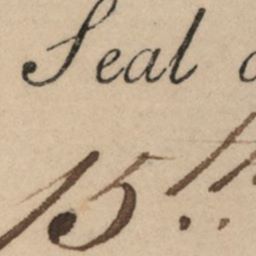 Seal
15th